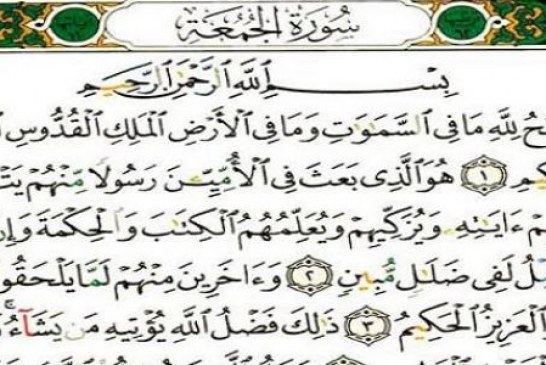 سُورَةُ الجُمُعَةِ
بِسْمِ ٱللَّهِ ٱلرَّحْمَٰنِ ٱلرَّحِيمِ
لِلَّهِ مَا فِى ٱلسَّمَٰوَٰتِ وَمَا فِى ٱلْأَرْضِ ٱلْمَلِكِ ٱلْقُدُّوسِ
١ هُوَ ٱلَّذِى بَعَثَ فِى ٱلْأُمِّيِّۦنَ رَسُولًا مِّنْهُمْ
ءَايَٰتِهِۦ وَيُزَكِّيهِمْ وَيُعَلِّمُهُمُ ٱلْكِتَٰبَ وَٱلْحِكْمَةَ
لَفِى ضَلَٰلٍ مُّبِينٍ ٢ وَءَاخَرِينَ مِنْهُمْ لَمَّا
ٱلْعَزِيزُ ٱلْحَكِيمُ ٣ ذَٰلِكَ فَضْلُ ٱللَّهِ يُؤْتِيهِ مَن يَشَآءُ